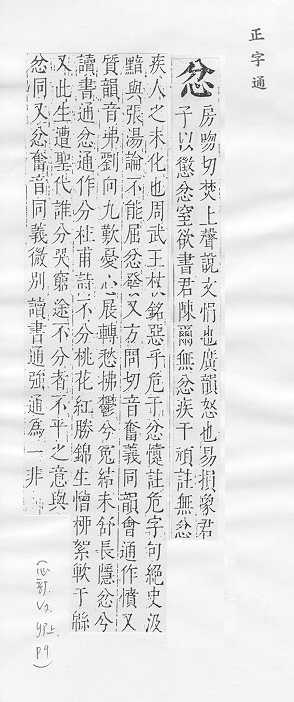 正字通
忿
房吻切焚上聲說文悁也廣韻怒也易損象君
子以懲忿窒欲書君陳爾無忿疾于頑註無忿
疾人之未化也周武王杖銘惡乎危于忿懥註危字句絕史汲
黯與張湯論不能屈忿發又方問切音奮義同韻會通作憤又
質韻音弗劉向九歎憂心展轉愁怫鬱兮冤結未舒長隱忿兮
讀書通忿通作分杜甫詩不分桃花紅勝錦生憎柳絮軟于緜
又此生遭聖代誰分哭窮途不分者不平之意與
忿同又忿奮音同義微別讀書通強通爲一非
(心部. V2. 卯上. P9)